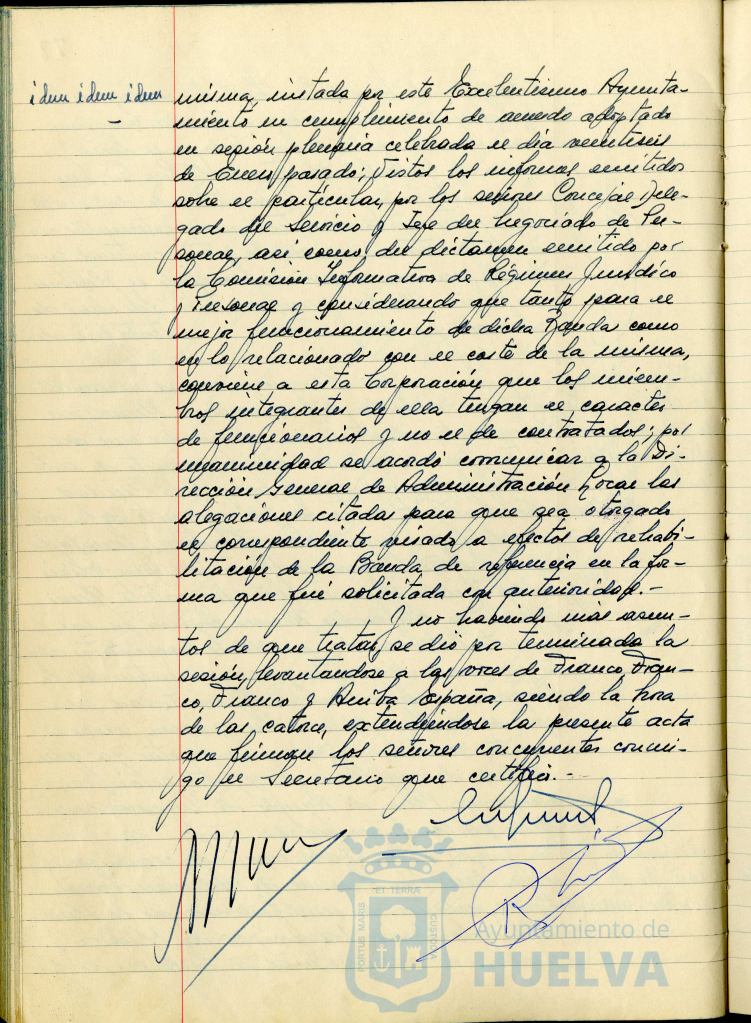 idem idem idem
misma, instada por este Excelentísimo Ayunta-
miento en cumplimiento de acuerdo adoptado
en sesión plenaria celebrada el día veintiseis
de Enero pasado; Vistos los informes emitidos
sobre el particular, por los señores Concejal Dele-
gado del Servicio y Jefe del Negociado de Per-
sonal, asi como, del dictamen emitido por
la Comisión Informativa de Régimen Jurídico
y Personal y considerando que tanto para el
mejor funcionamiento de dicha Banda como
en lo relacionado con el coste de la misma,
conviene a esta Corporación que los miem-
bros integrantes de ella tengan el caracter
de funcionarios y no el de contratados; por
unanimidad se acordó comunicar a la Di-
rección General de Administración Local las
alegaciones citadas para que sea otorgado
el correspondiente visado a efectos de rehabi-
litación de la Banda de referencia en la for-
ma que fué solicitada con anterioridad.-
Y no habiendo más asun-
tos de que tratar, se dió por terminada la
sesión, levantandose a las voces de Franco, Fran-
co, Franco y Arriba España, siendo la hora
de las catorce, extendiéndose la presente acta
que firman los señores concurrentes conmi-
go el Secretario que certifico.-
ET TERRÆ
PORTUS MARIS
CUSTODIA
Ayuntamiento de
HUELVA